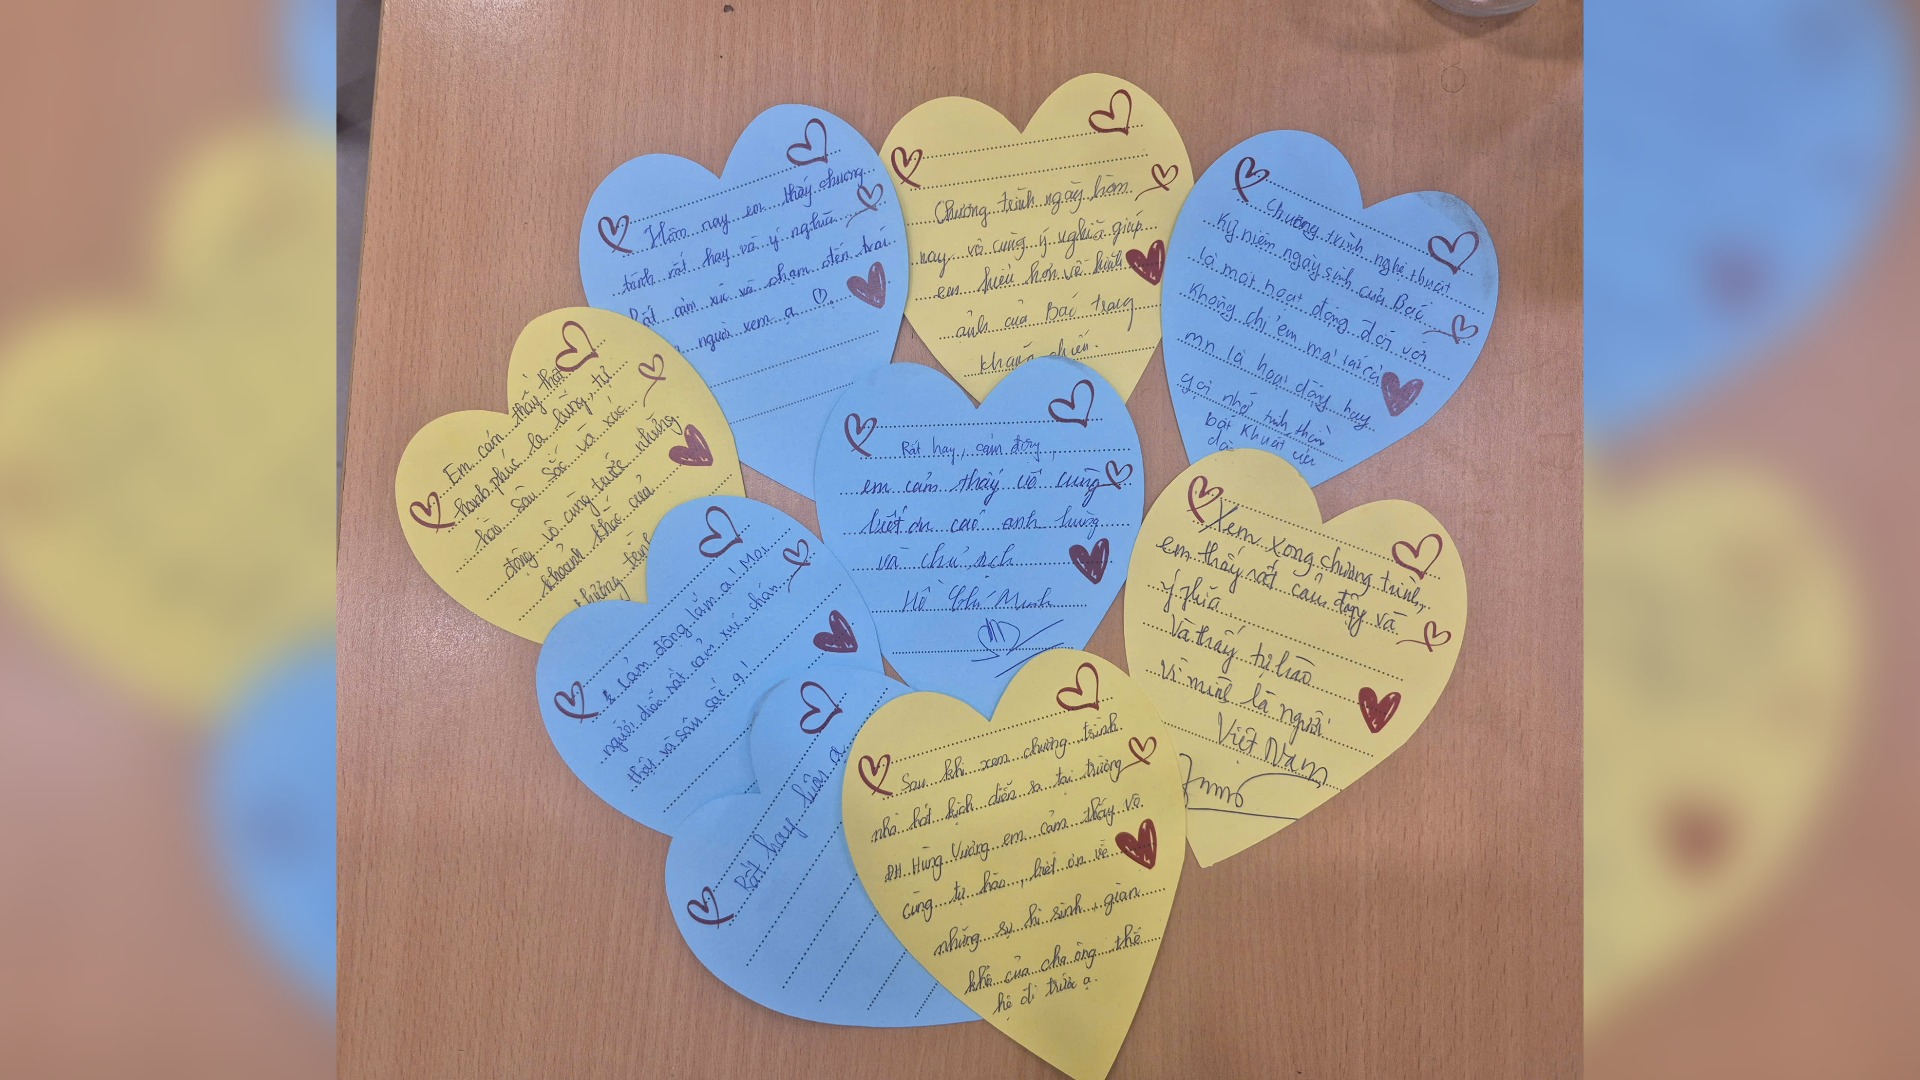 Hôm nay em thấy chương
trình rất hay và ý nghĩa
Rất cảm xúc và chạm đến trái
người xem ạ
Chương trình ngày hôm
nay vô cùng ý nghĩa giúp
em hiểu hơn về hình
ảnh của Bác trong
kháng chiến.
Chương trình nghệ thuật
Kỷ niệm ngày sinh của Bác
là một hoạt động đối với
không chỉ em mà tất cả
mn là hoạt động hay
gợi nhớ tinh thần
bất khuất
Em cảm thấy thật
hạnh phúc lẫn lùng, tự
hào sâu sắc và xúc
động vô cùng trước những
khoảnh khắc của
chương trình
Rất hay, cảm động,
em cảm thấy vô cùng
biết ơn các anh hùng
và chủ tịch
Hồ Chí Minh
Xem xong chương trình,
em thấy rất cảm động và
ý nghĩa
Và thấy tự hào
vì mình là người
Việt Nam
cảm động lắm ạ! Mọi
người diễn rất cảm xúc, chân
thật và sâu sắc ạ!
Rất hay luôn ạ
Sau khi xem chương trình
nhà hát kịch diễn ra tại trường
ĐH Hùng Vương em cảm thấy vô
cùng tự hào, biết ơn về
những sự hi sinh, gian
khổ của cha ông thế
hệ đi trước ạ.